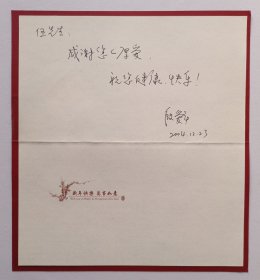 伍先生:
感谢您的厚爱,
祝您健康、快乐!
2004.12.23
新年快樂 萬事如意